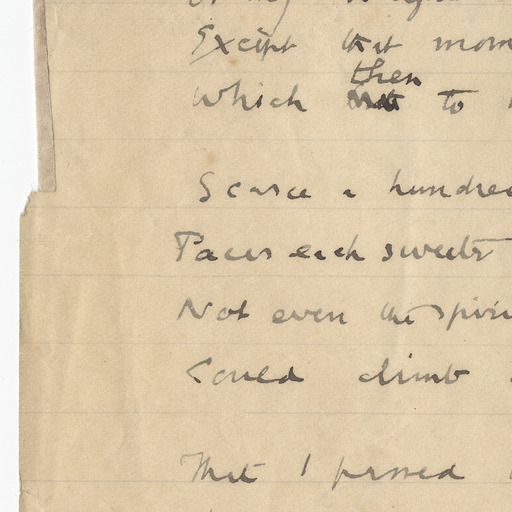 Except that mom
then
Which to
Scarce a hundred
Paces each sweet
Not even the spiri
Could climb
That I passed